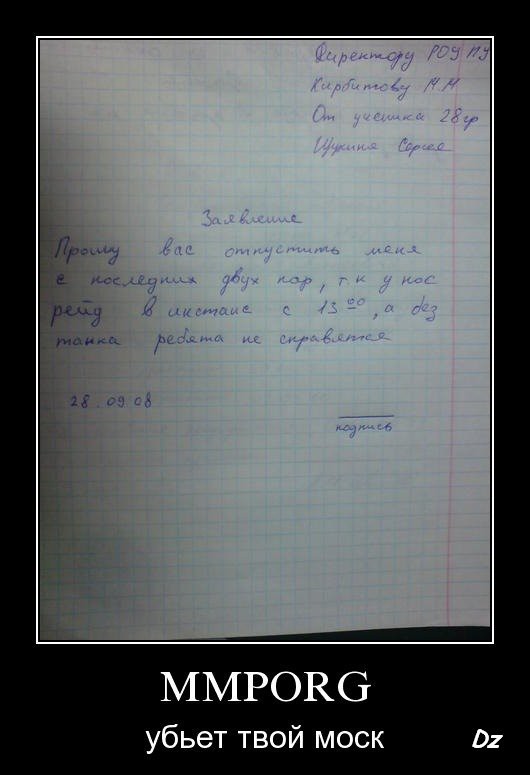 Директору РОУ ПУ
Кирбитову М.М
От ученика 28гр
Щукина Сергея
Заявление
Прошу вас отпустить меня
с последних двух пар, т.к у нас
рейд в инстанс с 13 00, а без
танка ребята не справятся
28.09.08
подпись
MMPORG
убьет твой моск
Dz